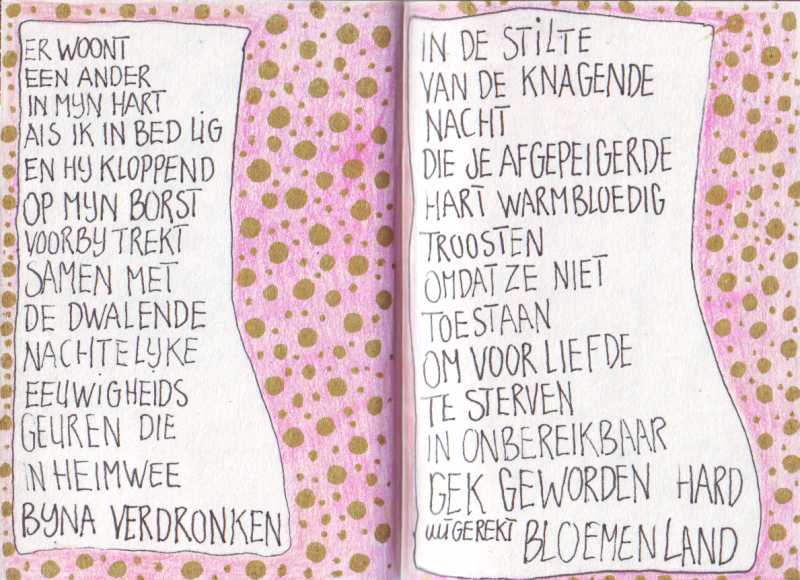 ER WOONT
EEN ANDER
IN MYN HART
ALS IK IN BED LIG
EN HY KLOPPEND
OP MYN BORST
VOORBY TREKT
SAMEN MET
DE DWALENDE
NACHTELYKE
EEUWIGHEIDS
GEUREN DIE
IN HEIMWEE
BYNA VERDRONKEN
IN DE STILTE
VAN DE KNAGENDE
NACHT
DIE JE AFGEPEIGERDE
HART WARMBLOEDIG
TROOSTEN
OMDAT ZE NIET
TOESTAAN
OM VOOR LIEFDE
TE STERVEN
IN ONBEREIKBAAR
GEK GEWORDEN HARD
UITGEREKT BLOEMENLAND